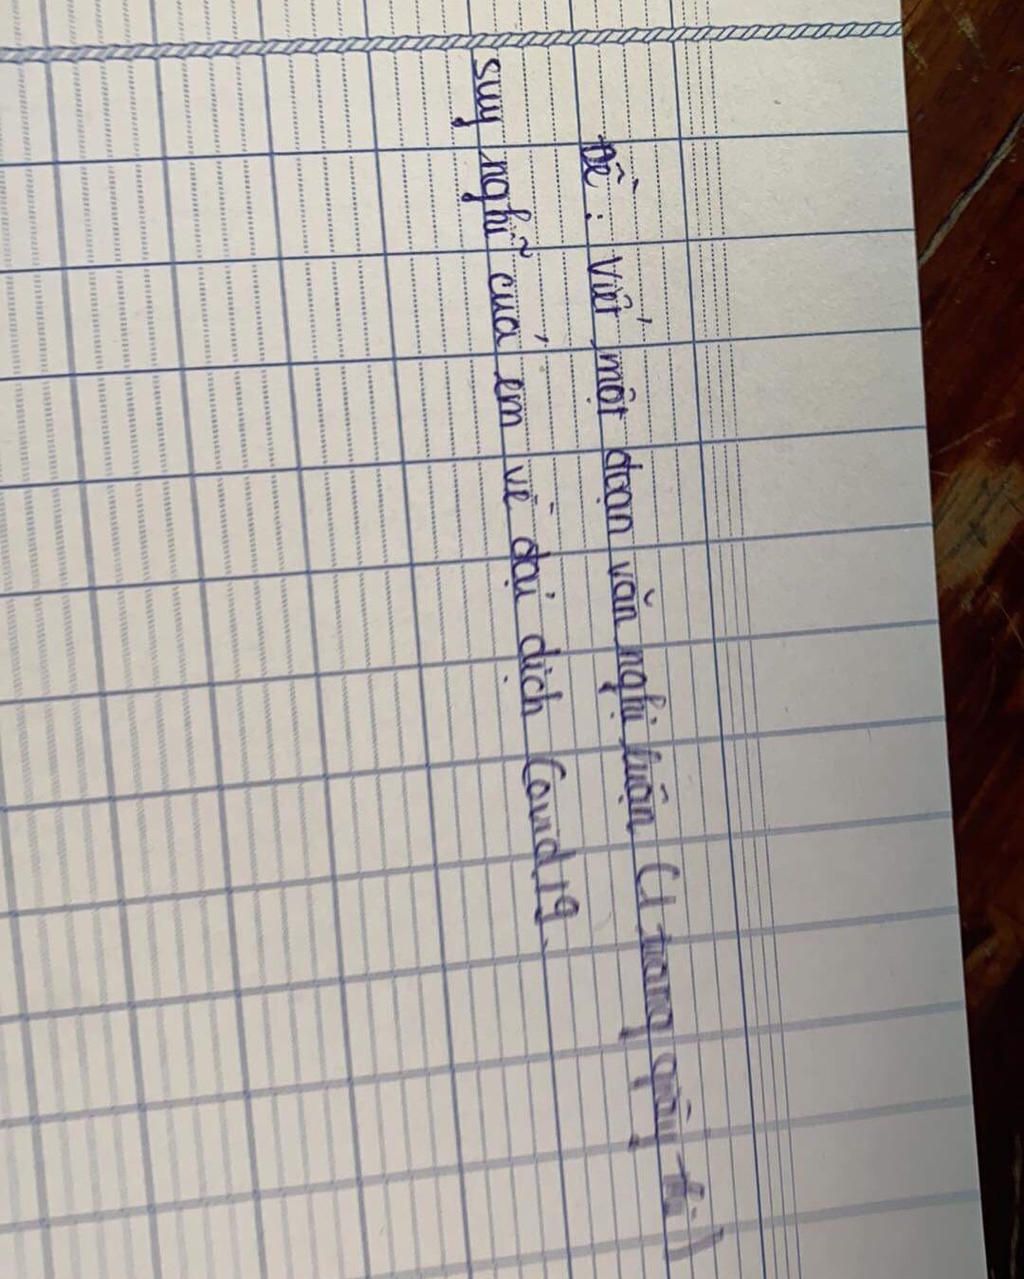 Đề: Viết một đoạn văn nghị luận (1 trang giấy thi)
suy nghĩ của em về đại dịch Covid 19.